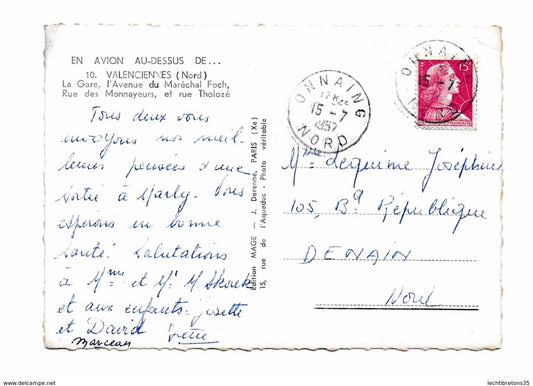 EN AVION AU-DESSUS DE...
10. VALENCIENNES (Nord)
La Gare, l'Avenue du Maréchal Foch,
Rue des Monnayeurs, et rue Tholozé
Tous deux vous
envoyons nos meil
leures pensées d'une
sortie à Marly. Vous
espérons en bonne
Santé. Salutations
à Mme et Mr M.
et aux enfants. Josette
et David
Marceau
Edition MAGE — J. Derenne, PARIS (Xe)
15, rue de l'Aqueduc - Photo véritable
ONNAING
12H
15-7
1957
NORD
ONNAING
15-7
15F
Mme Lequime Joséphine
105, Bd République
DENAIN
Nord
lechtibretons35